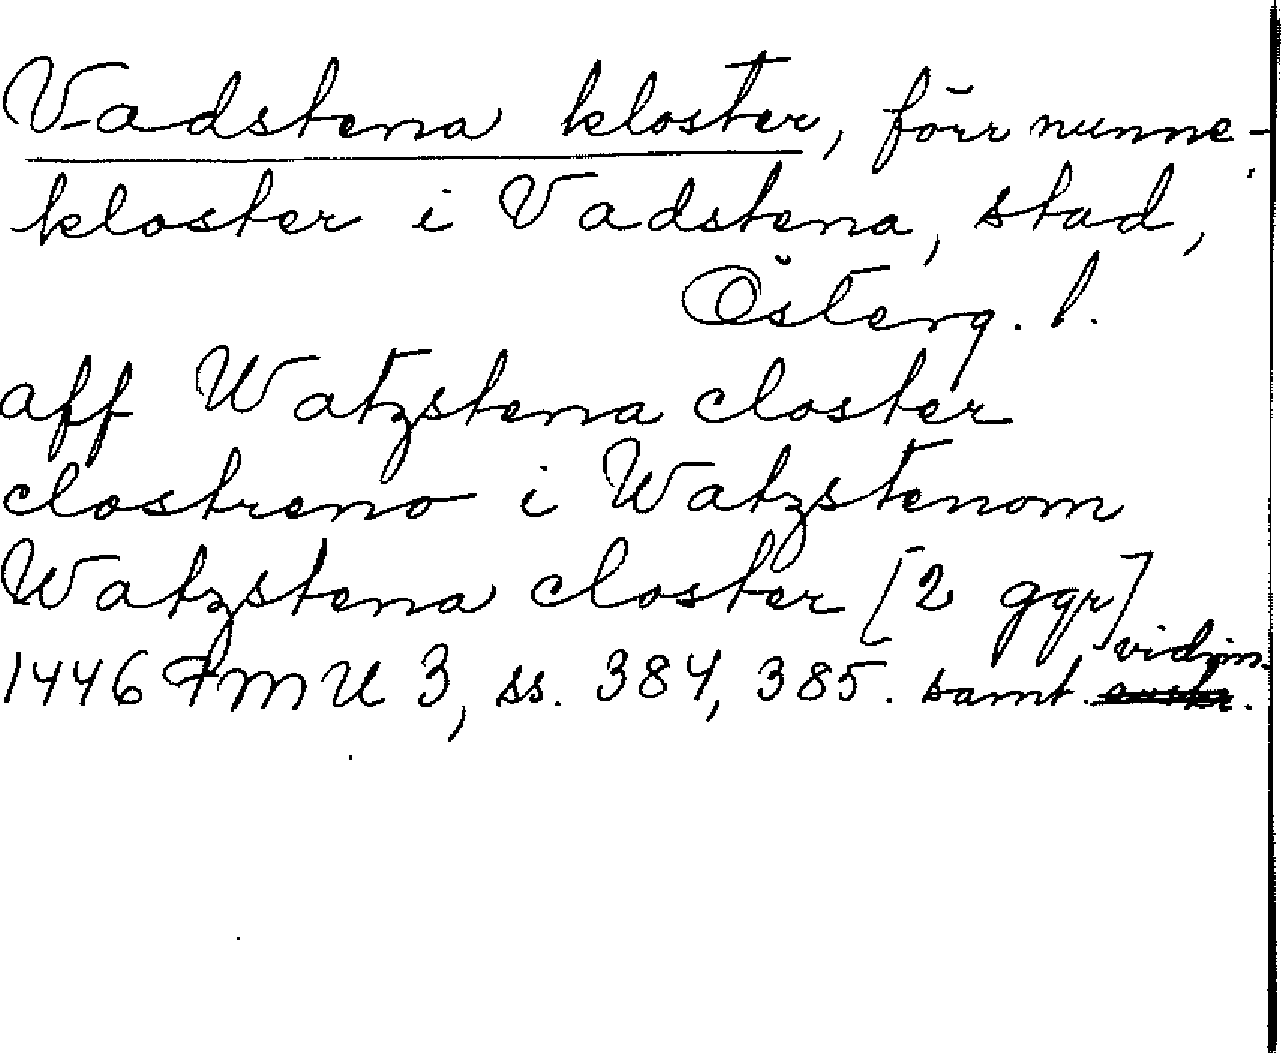 Vadstena kloster, förr nunne-
kloster i Vadstena, stad,
Österg. l.
aff Watzstena closter
clostreno i Watzstenom
Watzstena closter [2 ggr]
1446 FMU 3, ss. 384, 385. samt. vidim.